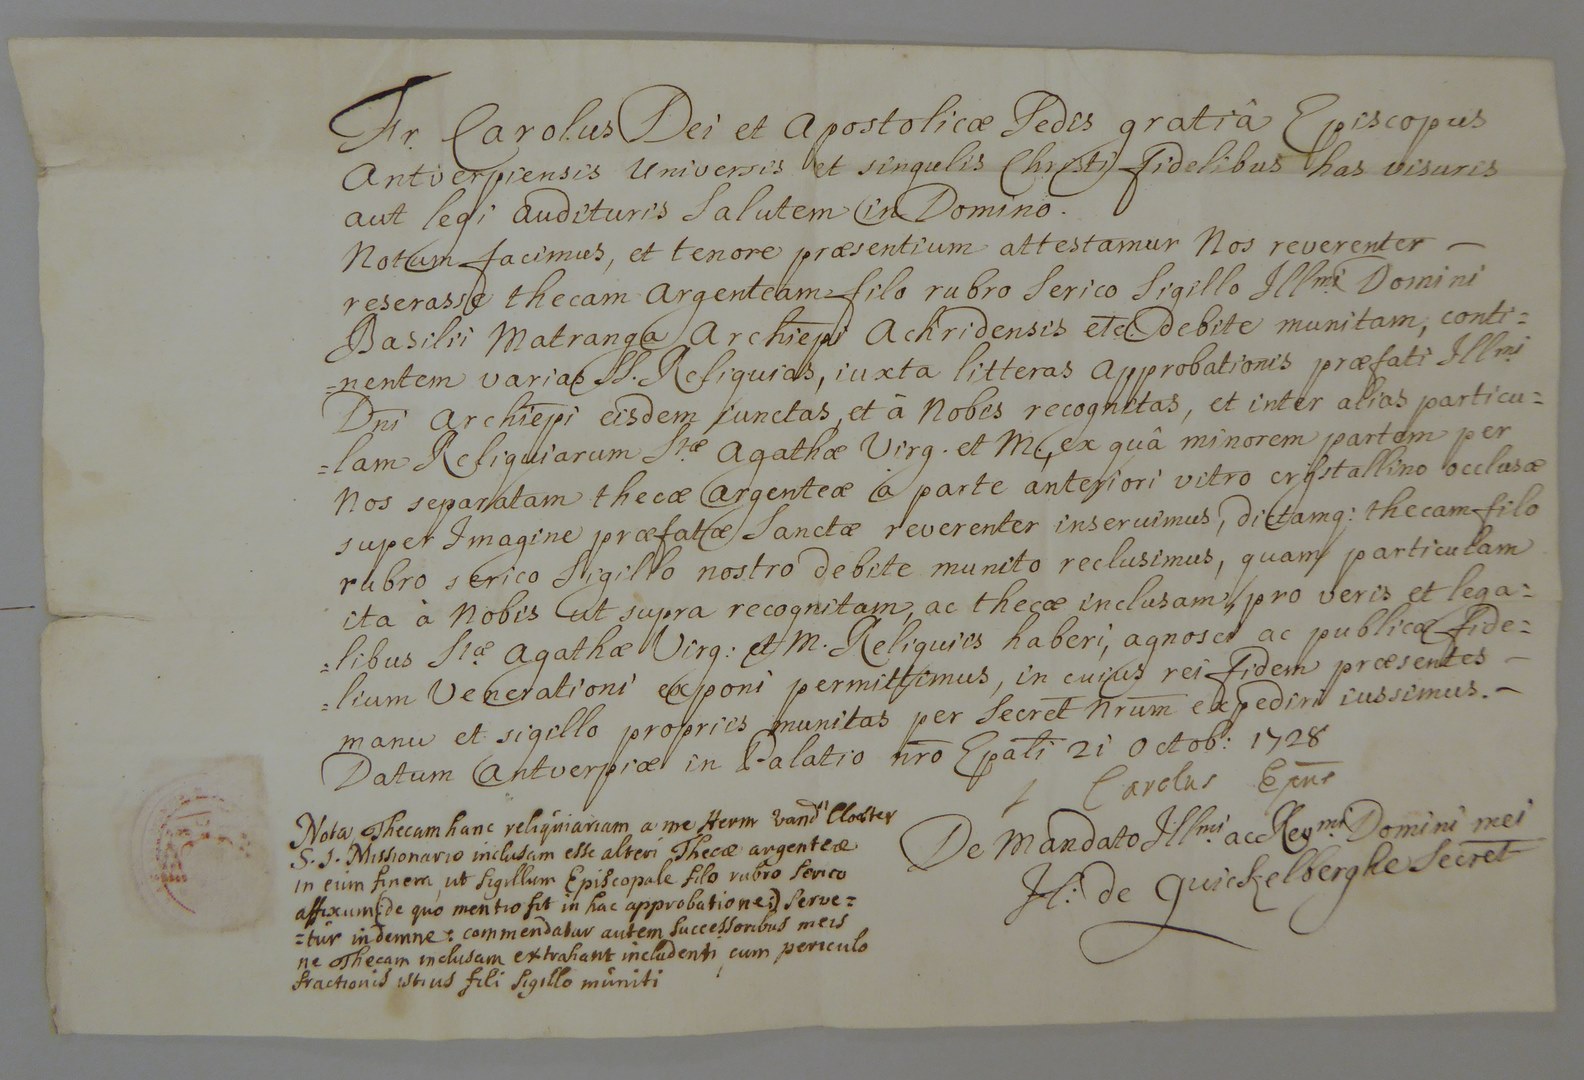 Fr. Carolus Dei et Apostolicæ Sedis gratiâ Episcopus
Antverpiensis Universis et singulis Christi fidelibus has visuris
aut legi audituris Salutem in Domino.
Notum facimus, et tenore præsentium attestamur Nos reverenter –
reserasse thecam Argenteam filo rubro Serico Sigillo Illmi Domini
Basilii Matranga Archiepi Achridensis etc Debite munitam, conti=
=nentem varias SS. Reliquias, iuxta litteras Approbationis præfati Illmi
Dni Archiepi eisdem iunctas, et à Nobis recognitas, et inter alias particu=
=lam Reliquiarum Stæ Agathæ Virg. et M., ex quâ minorem partem per
Nos separatam thecæ Argenteæ à parte anteriori vitro crystallino occlusæ
super Imagine præfatæ Sanctæ reverenter inseruimus, dictamq: thecam filo
rubro serico Sigillo nostro debite munito reclusimus, quam particulam
ita à Nobis ut supra recognitam, ac thecæ inclusam, pro veris et lega=
=libus Stæ Agathæ Virg: et M. Reliquiis haberi, agnosci ac publicæ fide=
=lium Venerationi exponi permittimus, in cuius rei fidem præsentes –
manu et sigillo propriis munitas per Secret Nrum expediri iussimus. –
Datum Antverpiæ in Palatio nro Epali 21 Octob: 1728
Carolus Epus
De Mandato Illmi ac Revmi Domini mei
H: de Quickelberghe Secret
Nota Thecam hanc reliquiariam a me Herm vand Clooster
S. J. Missionario inclusam esse alteri Thecæ argenteæ
in eum finem, ut Sigillum Episcopale filo rubro Serico
affixum (:de quo mentio fit in hac approbatione:) Serve=
=tur indemne: commendatur autem Successoribus meis
ne Thecam inclusam extrahant includenti, cum periculo
fractionis istius fili Sigillo muniti